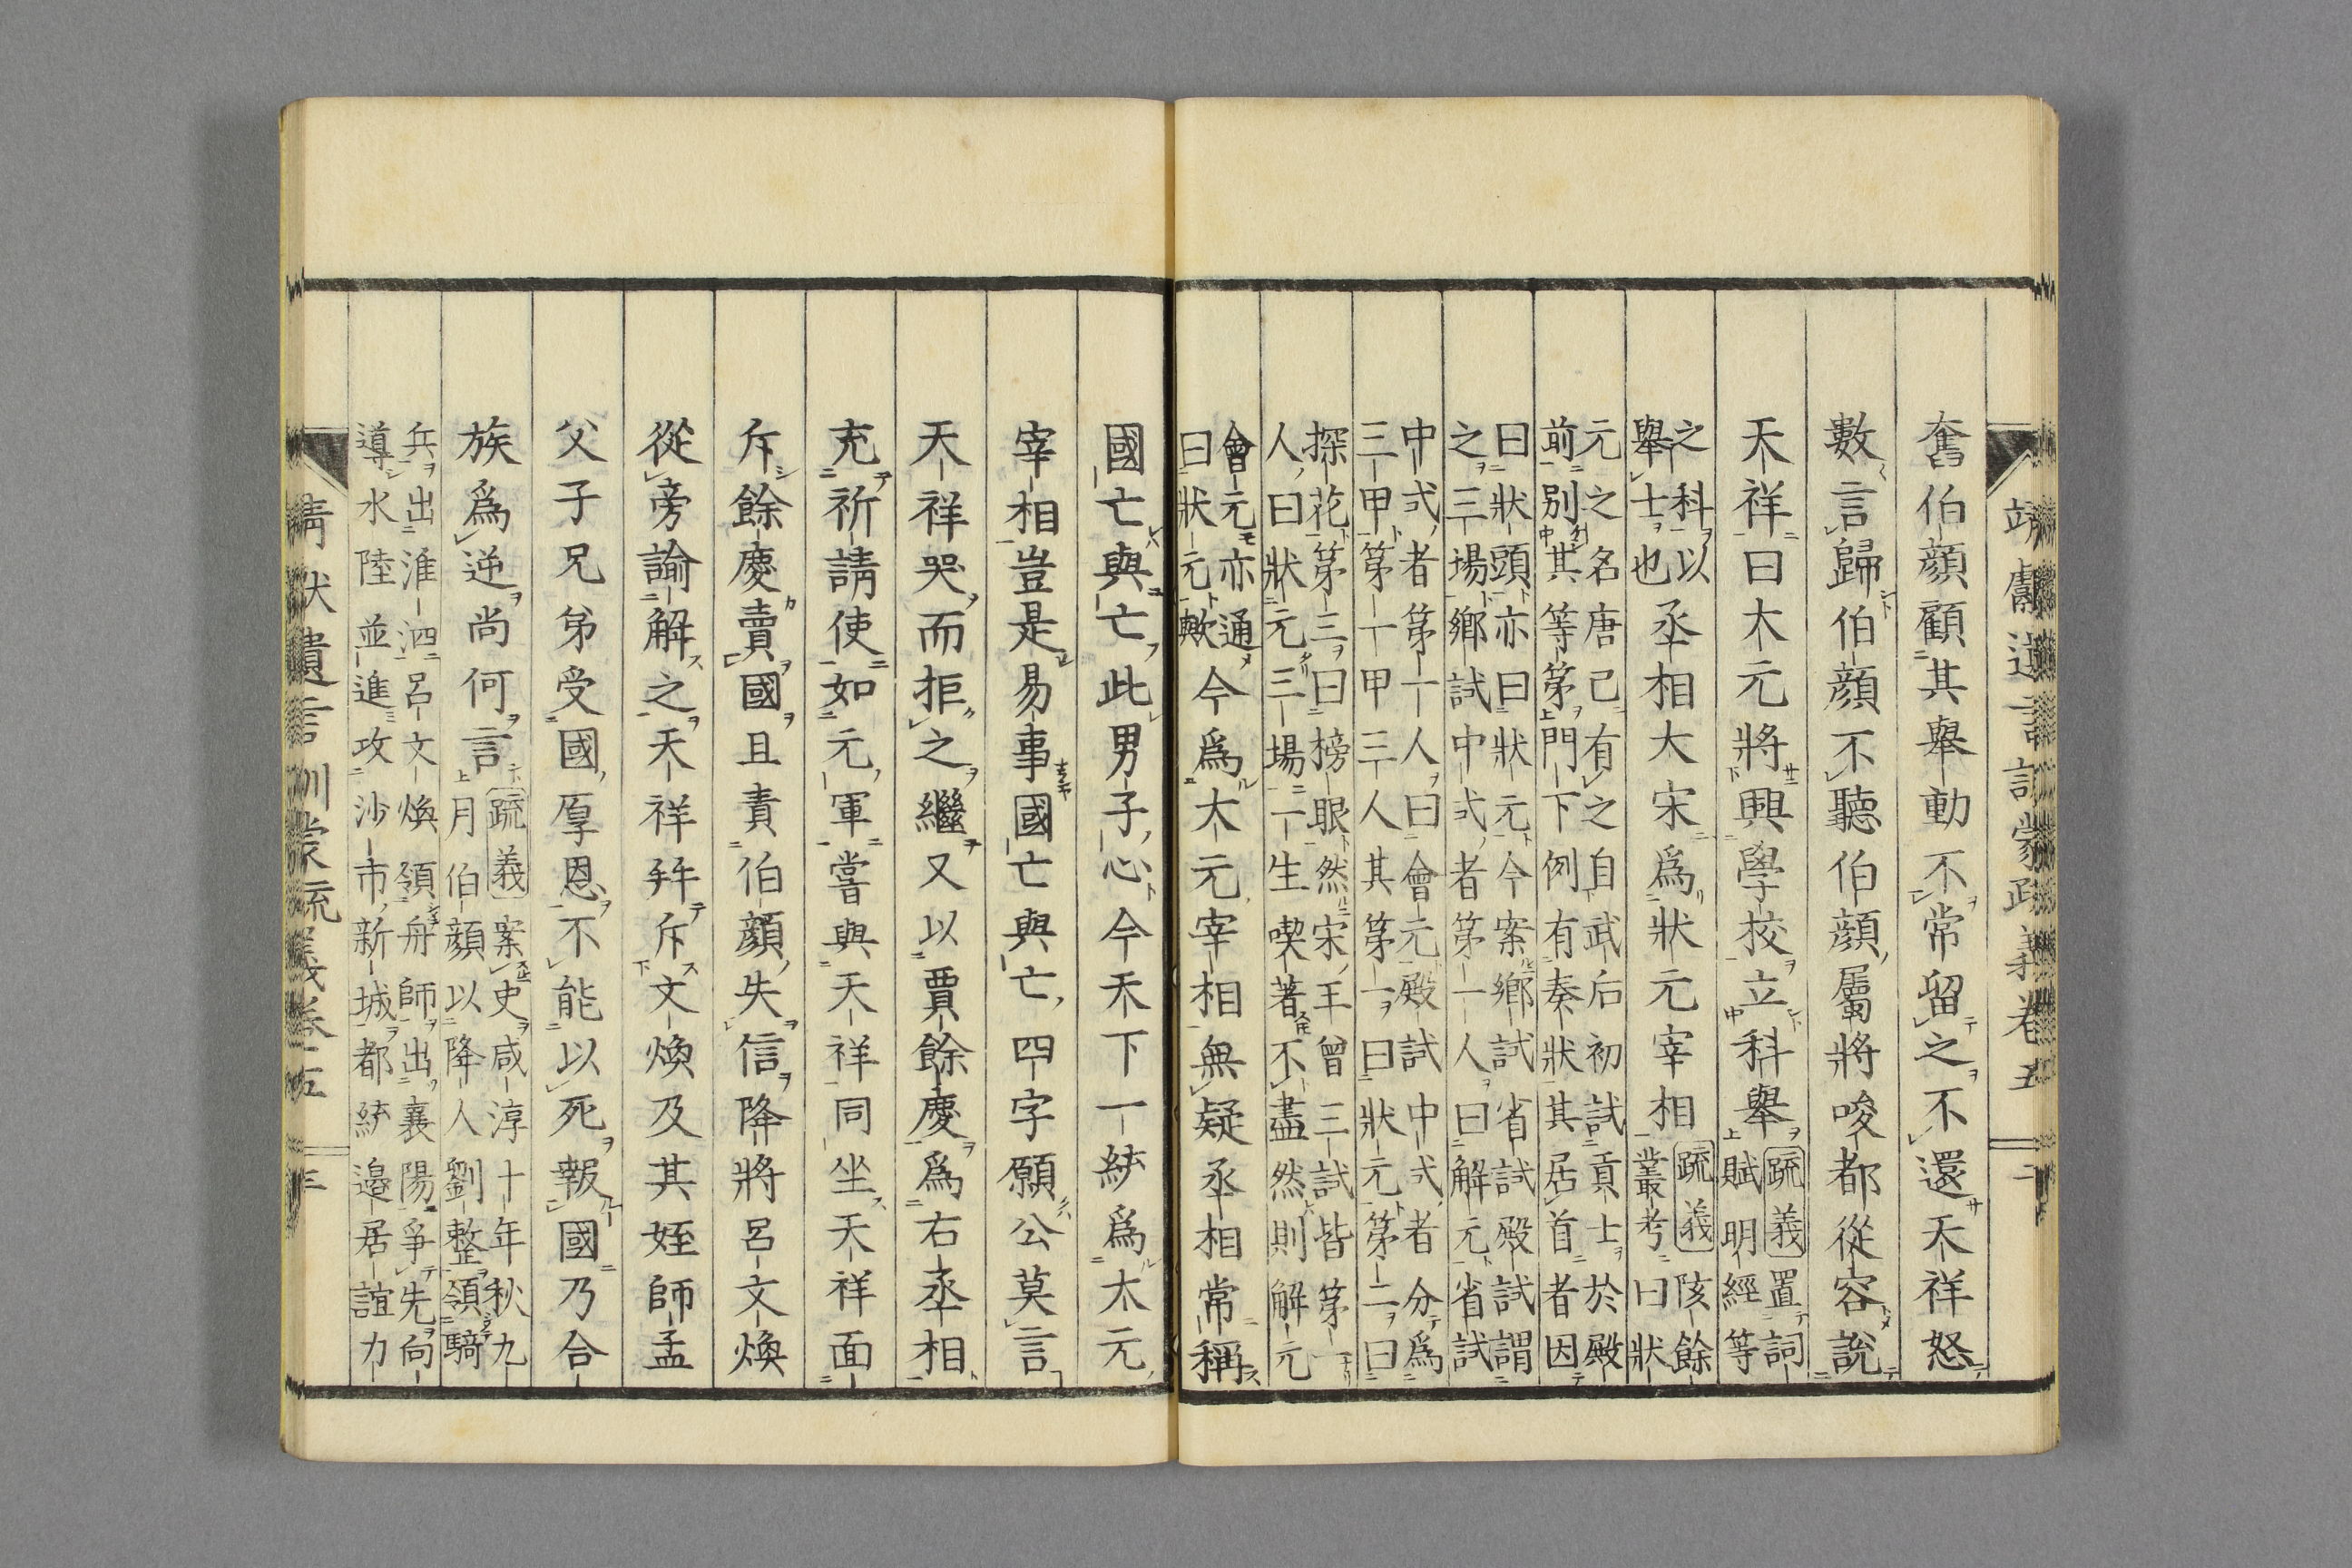 靖獻遺言訓蒙疏義卷五 二
奮伯顏顧其舉動不常留之不還天祥怒
數言歸伯顏不聽伯顏屬將唆都從容說
天祥曰大元將興學校立科舉疏義置詞
賦明經等
之科以
舉士也丞相大宋爲狀元宰相疏義陔餘
叢考曰狀
元之名唐已有之自武后初試貢士於殿
前別其等第門下例有奏狀其居首者因
曰狀頭亦曰狀元今案鄉試省試殿試謂
之三場鄉試中式者第一人曰解元省試
中式者第一人曰會元殿試中式者分爲
三甲第一甲三人其第一曰狀元第二曰
探花第三曰榜眼然宋王曾三試皆第一
人曰狀元三場一生喫著不盡然則解元
會元亦通
曰狀元歟今爲大元宰相無疑丞相常稱
國亡與亡此男子心今天下一統爲大元
宰相豈是易事國亡與亡四字願公莫言
天祥哭而拒之繼又以賈餘慶爲右丞相
充祈請使如元軍嘗與天祥同坐天祥面
斥餘慶賣國且責伯顏失信降將呂文煥
從旁諭解之天祥幷斥文煥及其姪師孟
父子兄弟受國厚恩不能以死報國乃合
族爲逆尚何言疏義案史咸淳十年秋九
月伯顏以降人劉整領騎
兵出淮泗呂文煥領舟師出襄陽爭先向
導水陸並進攻沙市新城都統邊居誼力
靖獻遺言訓蒙疏義卷五 三